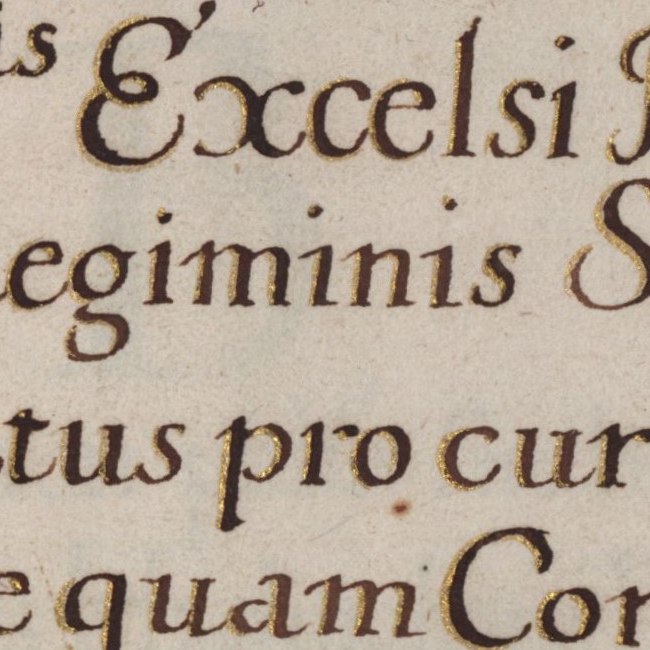 is Excelsi
egiminis S
tus pro cur
e quam Con